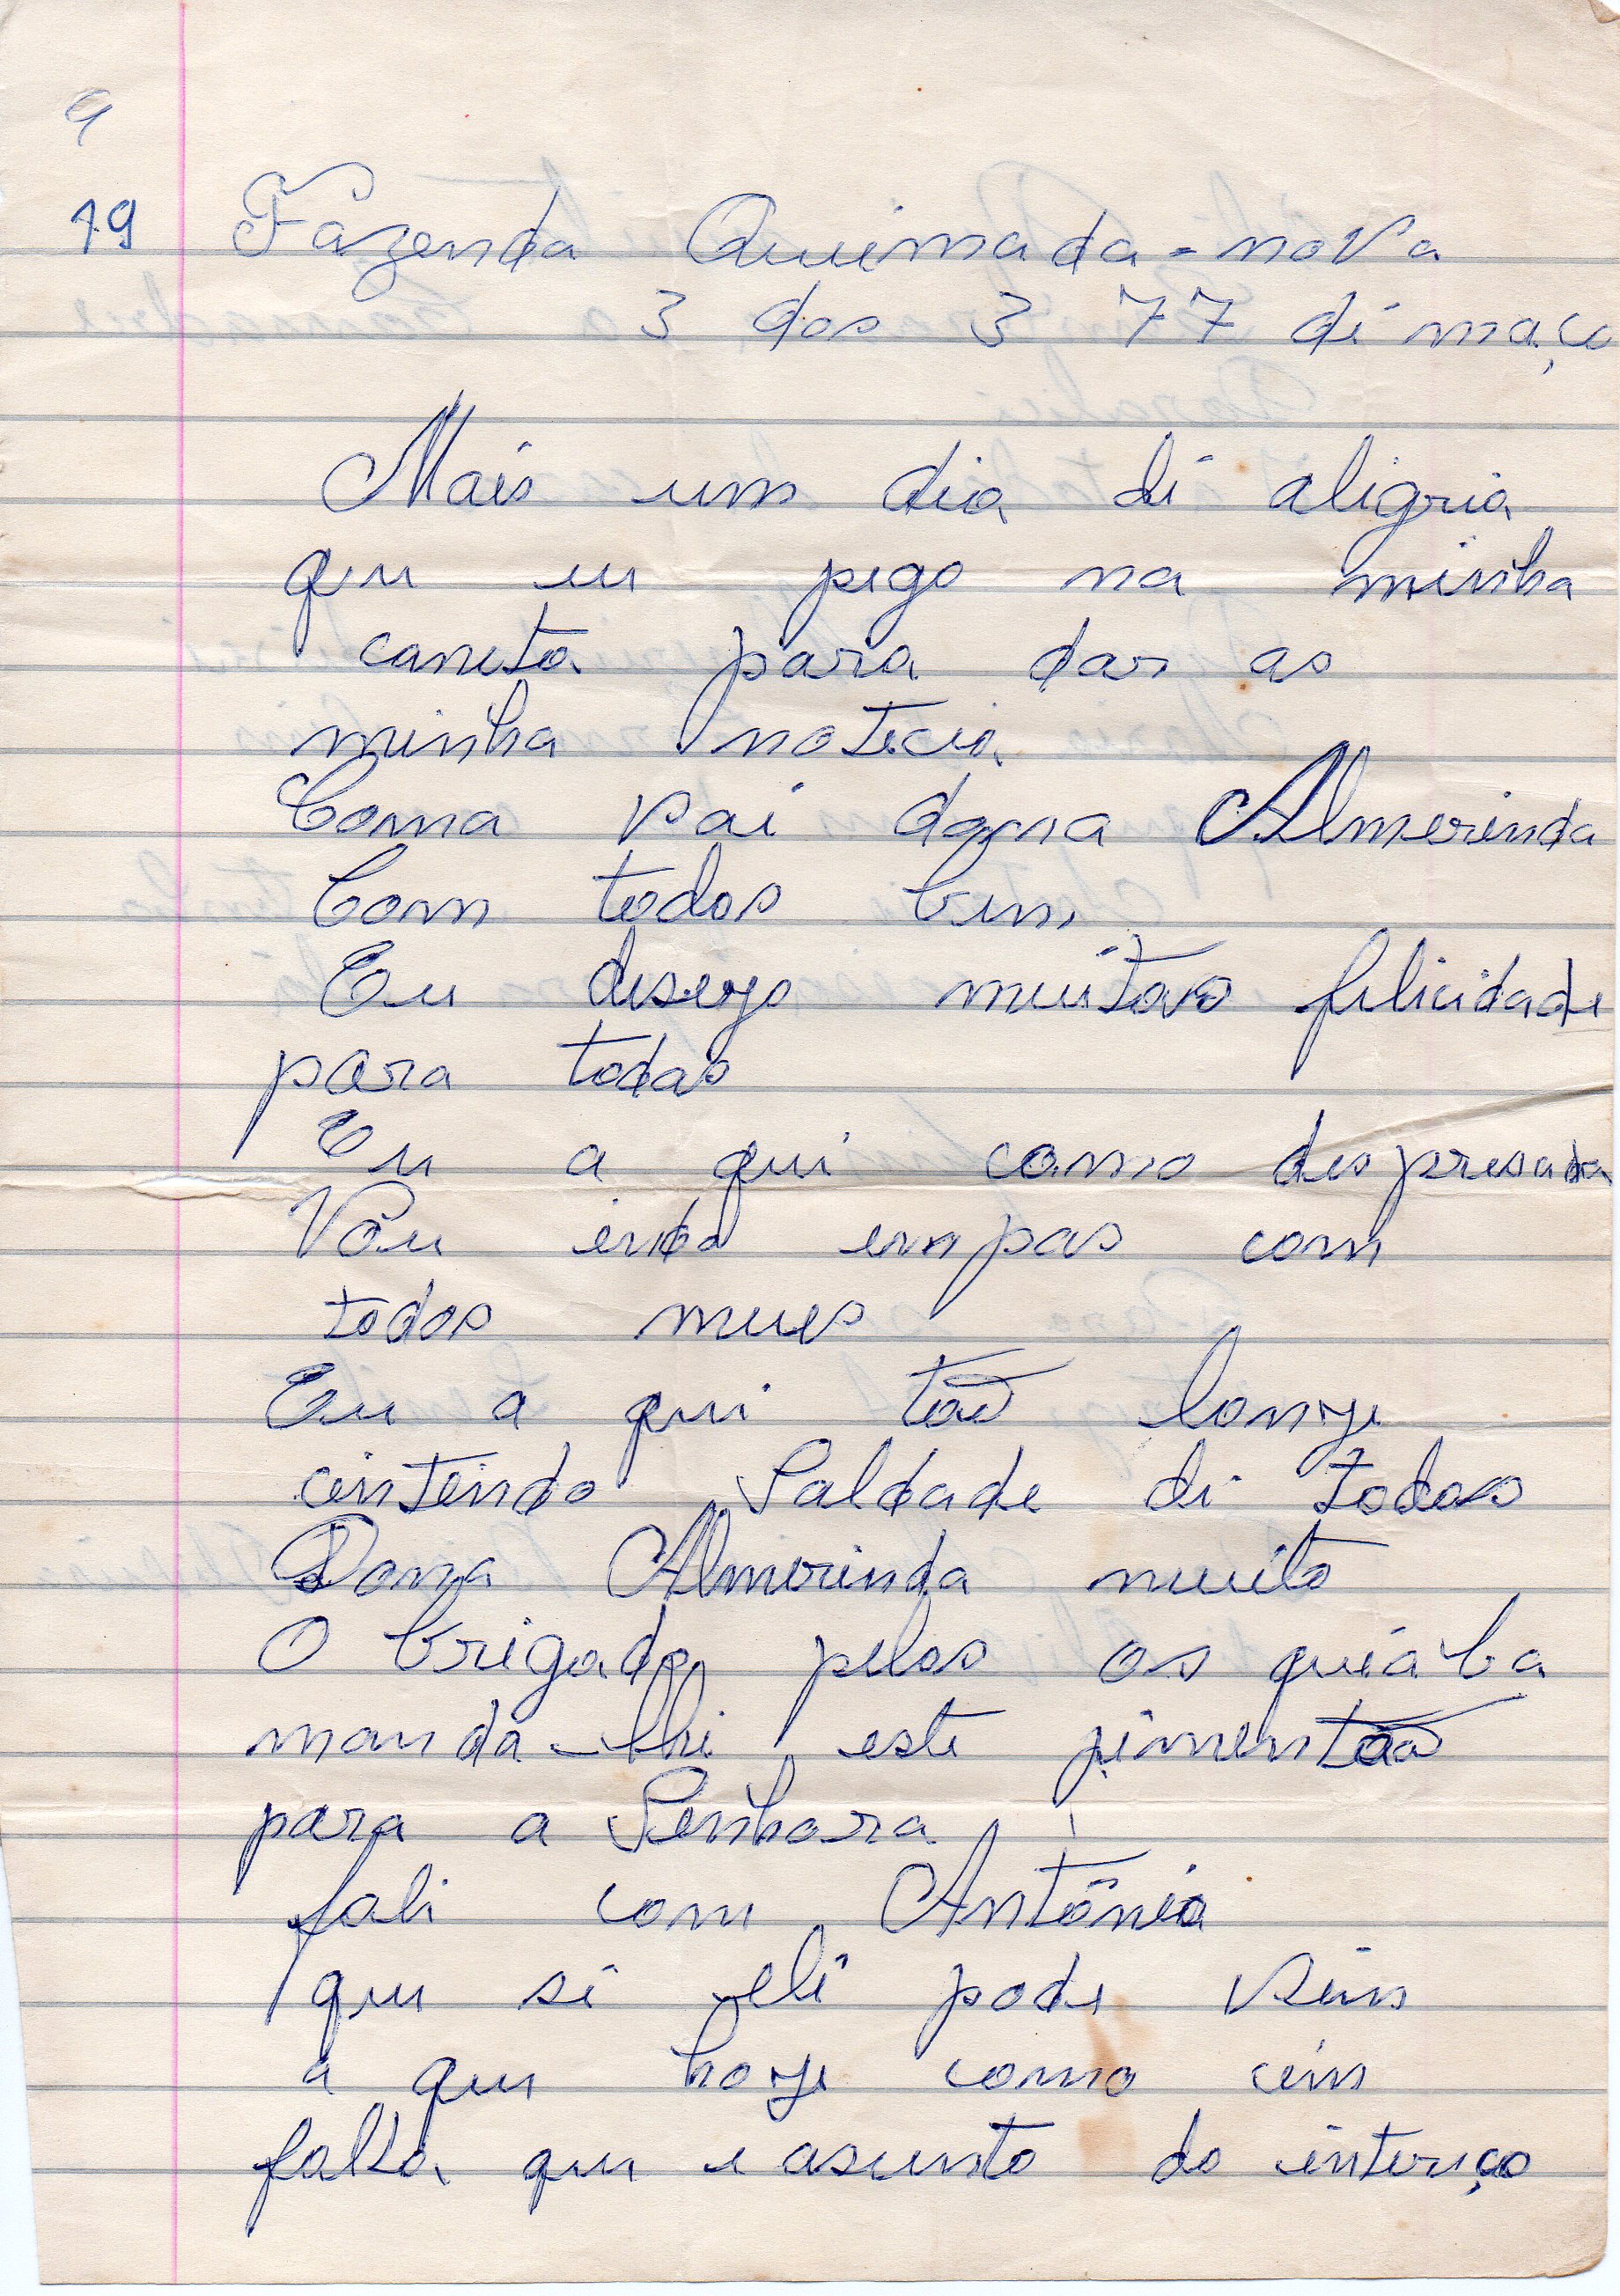 9
19 Fazenda Queimada-nova
3 dos 3 77 di março
Mais um dia di aligria
que eu pego na minha
caneta para dar as
minha noticia
Coma vai dona Almerinda
Com todos bem
Eu desejo muitas filicidade
para todas
Eu a qui como despresada
Vou indo empas com
todos meus
Eu a qui tão longe
cintindo Saldade di todas
Dona Almerinda muito
O brigado pelos os quiaba
manda-lhi este pimentão
para a Senhora
fali com Antônio
que si eli pode vim
a que hoje como cim
falta que e asunto do interiço